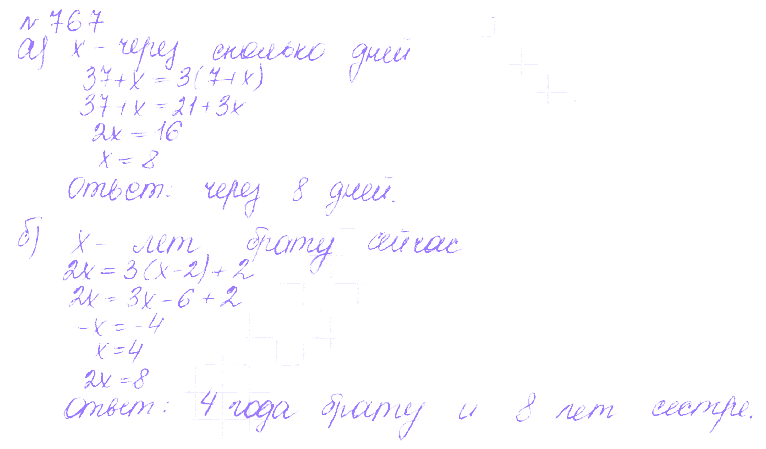 №767
а) х - через сколько дней
37+х = 3(7+х)
37+х = 21+3х
2х = 16
х = 8
Ответ: через 8 дней.
б) х - лет брату сейчас
2х = 3(х-2)+2
2х = 3х-6+2
-х = -4
х=4
2х=8
Ответ: 4 года брату и 8 лет сестре.